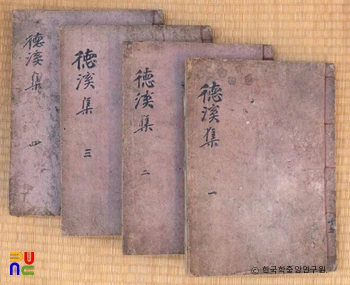 德溪集
四
德溪集
三
德溪集
二
德溪集
一
© 한국학중앙연구원